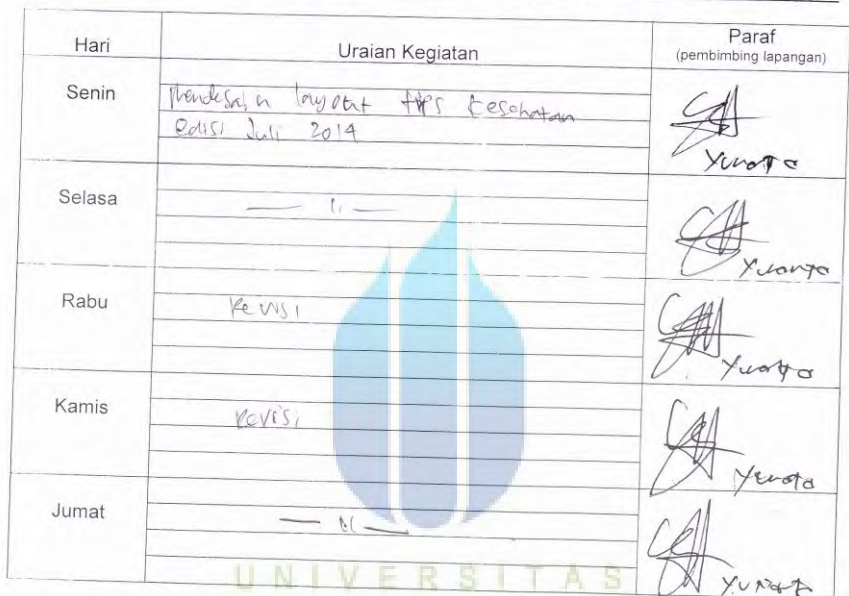 Hari Uraian Kegiatan Paraf
(pembimbing lapangan)
Senin Mendesain layout tips kesehatan
edisi Juli 2014
Yunata
Selasa — 11 —
Yunata
Rabu Revisi
Yunata
Kamis revisi
Yunata
Jumat — 11 —
Yunata
UNIVERSITAS